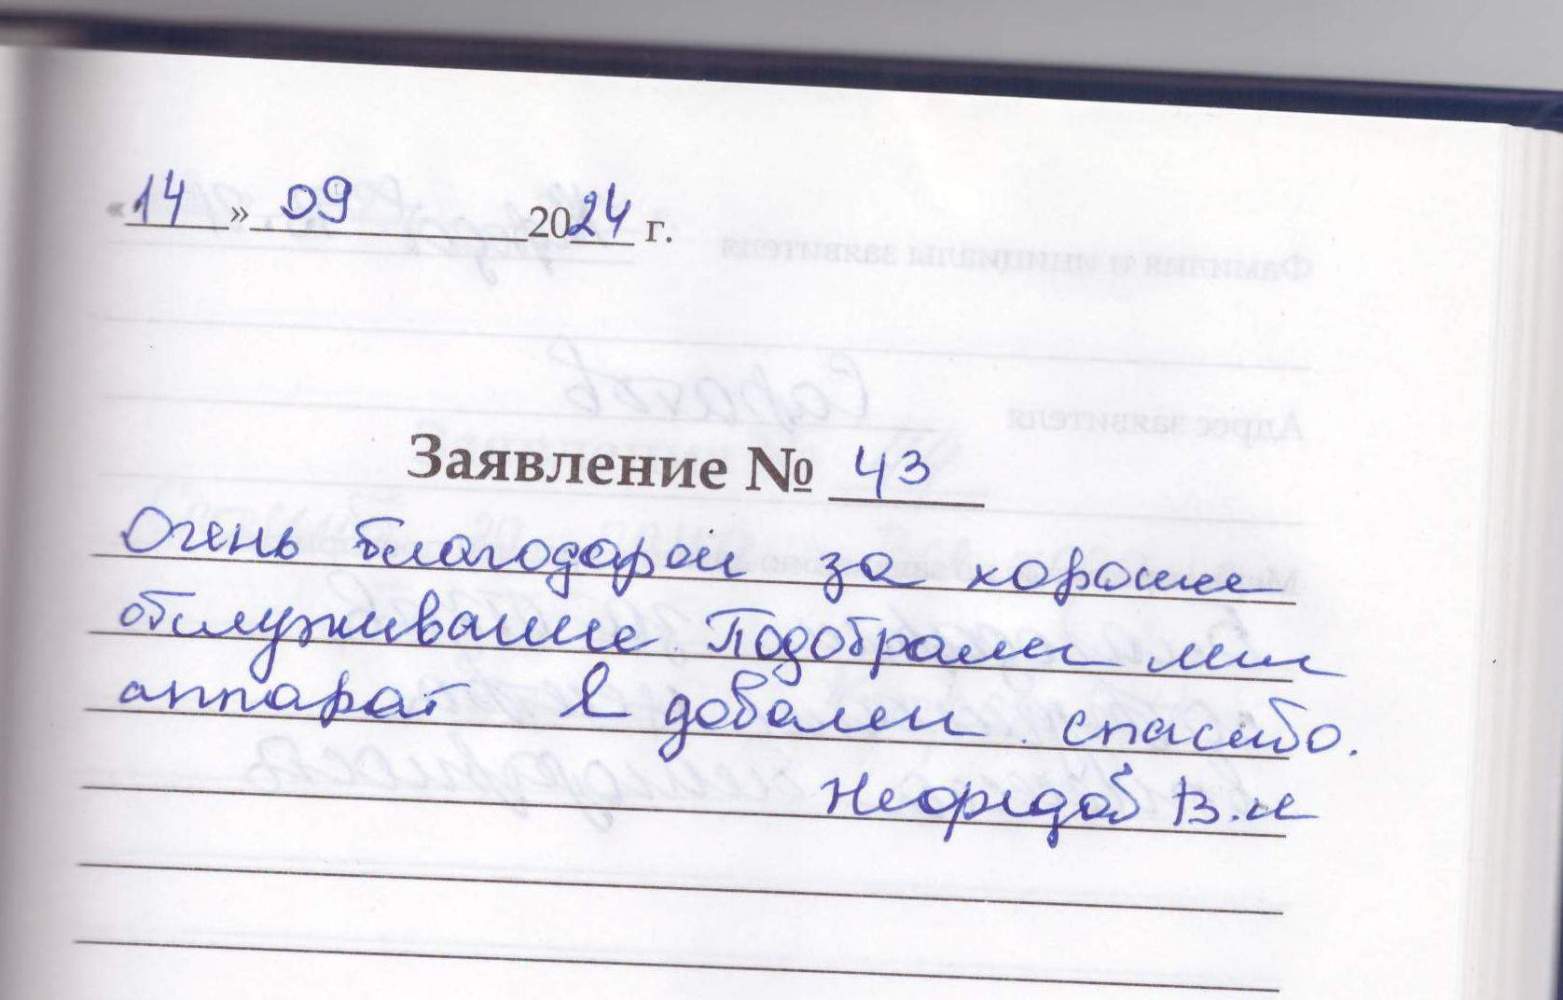 «14» 09 2024 г.
Заявление № 43
Очень благодарен за хорошее
обслуживание. Подобрали мне
аппарат я доволен. спасибо.
В.И